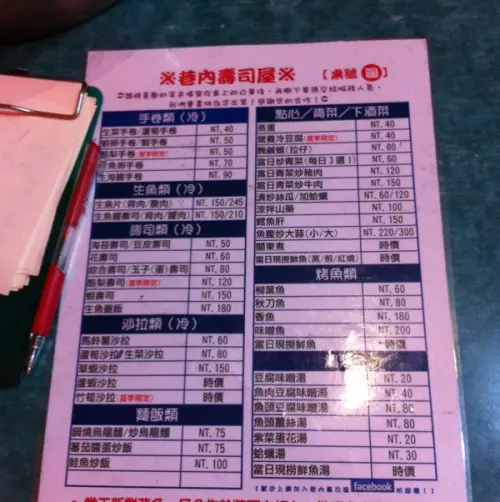 ※巷內壽司屋※ 【桌號 】
手卷類（冷）
生菜手卷/蘆筍手卷 NT. 40
蝦卵手卷/蝦手卷 NT. 50
酪梨手卷(夏季限定) NT. 50
NT. 70
生海膽手卷 NT. 90
生魚類（冷）
生魚片(背肉/腹肉) NT. 150/245
生魚蓋壽司(背肉/腹肉) NT. 150/210
壽司類（冷）
海苔壽司/豆皮壽司 NT. 50
花壽司 NT. 60
綜合壽司/玉子(蛋)壽司 NT. 80
酪梨壽司(夏季限定) NT. 120
蝦壽司 NT. 150
生魚蓋飯 NT. 180
沙拉類（冷）
馬鈴薯沙拉 NT. 60
蘆筍沙拉/生菜沙拉 NT. 80
草蝦沙拉 NT. 150
蘆蝦沙拉 時價
竹筍沙拉(夏季限定) 時價
麵飯類
鍋燒烏龍麵/炒烏龍麵 NT. 75
蕃茄醬蛋炒飯 NT. 75
鮭魚炒飯 NT. 100
點心／青菜／下酒菜
蒸蛋 NT. 40
營養冷豆腐(夏季限定) NT. 40
(拉仔) NT. 60
當日炒青菜(每日3選1) NT. 60
當日青菜炒豬肉 NT. 120
當日青菜炒牛肉 NT. 150
清炒絲瓜/加蛤蠣 NT. 60/120
涼拌山藥 NT. 100
鱈魚肝 NT. 150
魚腹炒大蒜(小/大) NT. 220/300
關東煮 時價
當日現撈鮮魚(蒸/煎/紅燒) 時價
烤魚類
柳葉魚 NT. 60
秋刀魚 NT. 80
香魚 NT. 180
味噌魚 NT. 200
當日現撈鮮魚 時價
豆腐味噌湯 NT. 20
魚肉豆腐味噌湯 NT. 40
魚頭豆腐味噌湯 NT. 80
魚頭薑絲湯 NT. 80
紫菜蛋花湯 NT. 20
蛤蠣湯 NT. 30
當日現撈鮮魚湯 時價
facebook